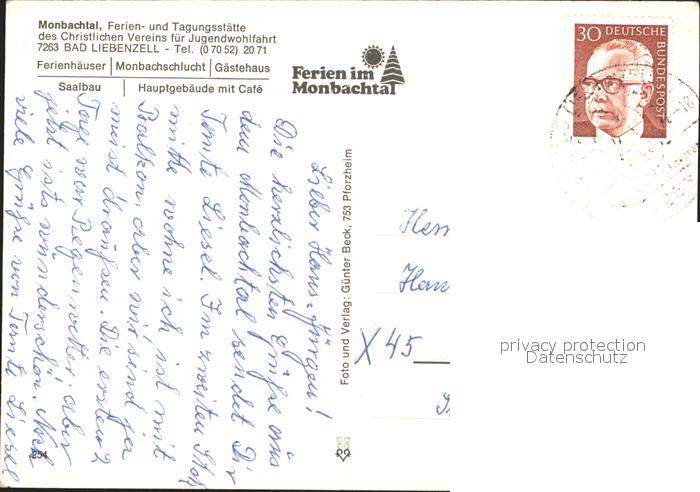 Monbachtal, Ferien- und Tagungsstätte
des Christlichen Vereins für Jugendwohlfahrt
7263 BAD LIEBENZELL - Tel. (0 70 52) 20 71
Ferienhäuser | Monbachschlucht | Gästehaus
Saalbau | Hauptgebäude mit Café
Ferien im
Monbachtal
30 DEUTSCHE
BUNDESPOST
Lieber Hans-Jürgen!
Die herzlichsten Grüße aus
dem Monbachtal sendet Dir
Tante Liesel. Im zweiten Stock
mitte wohne ich ist mit
Balkon aber wir sind ja
meist draußen. Die ersten 2
Tage war Regenwetter aber
jetzt ists wunderschön. Noch
viele Grüße von Tante Liesel
Foto und Verlag: Günter Beck, 753 Pforzheim
Herr
X 45
privacy protection
Datenschutz
254